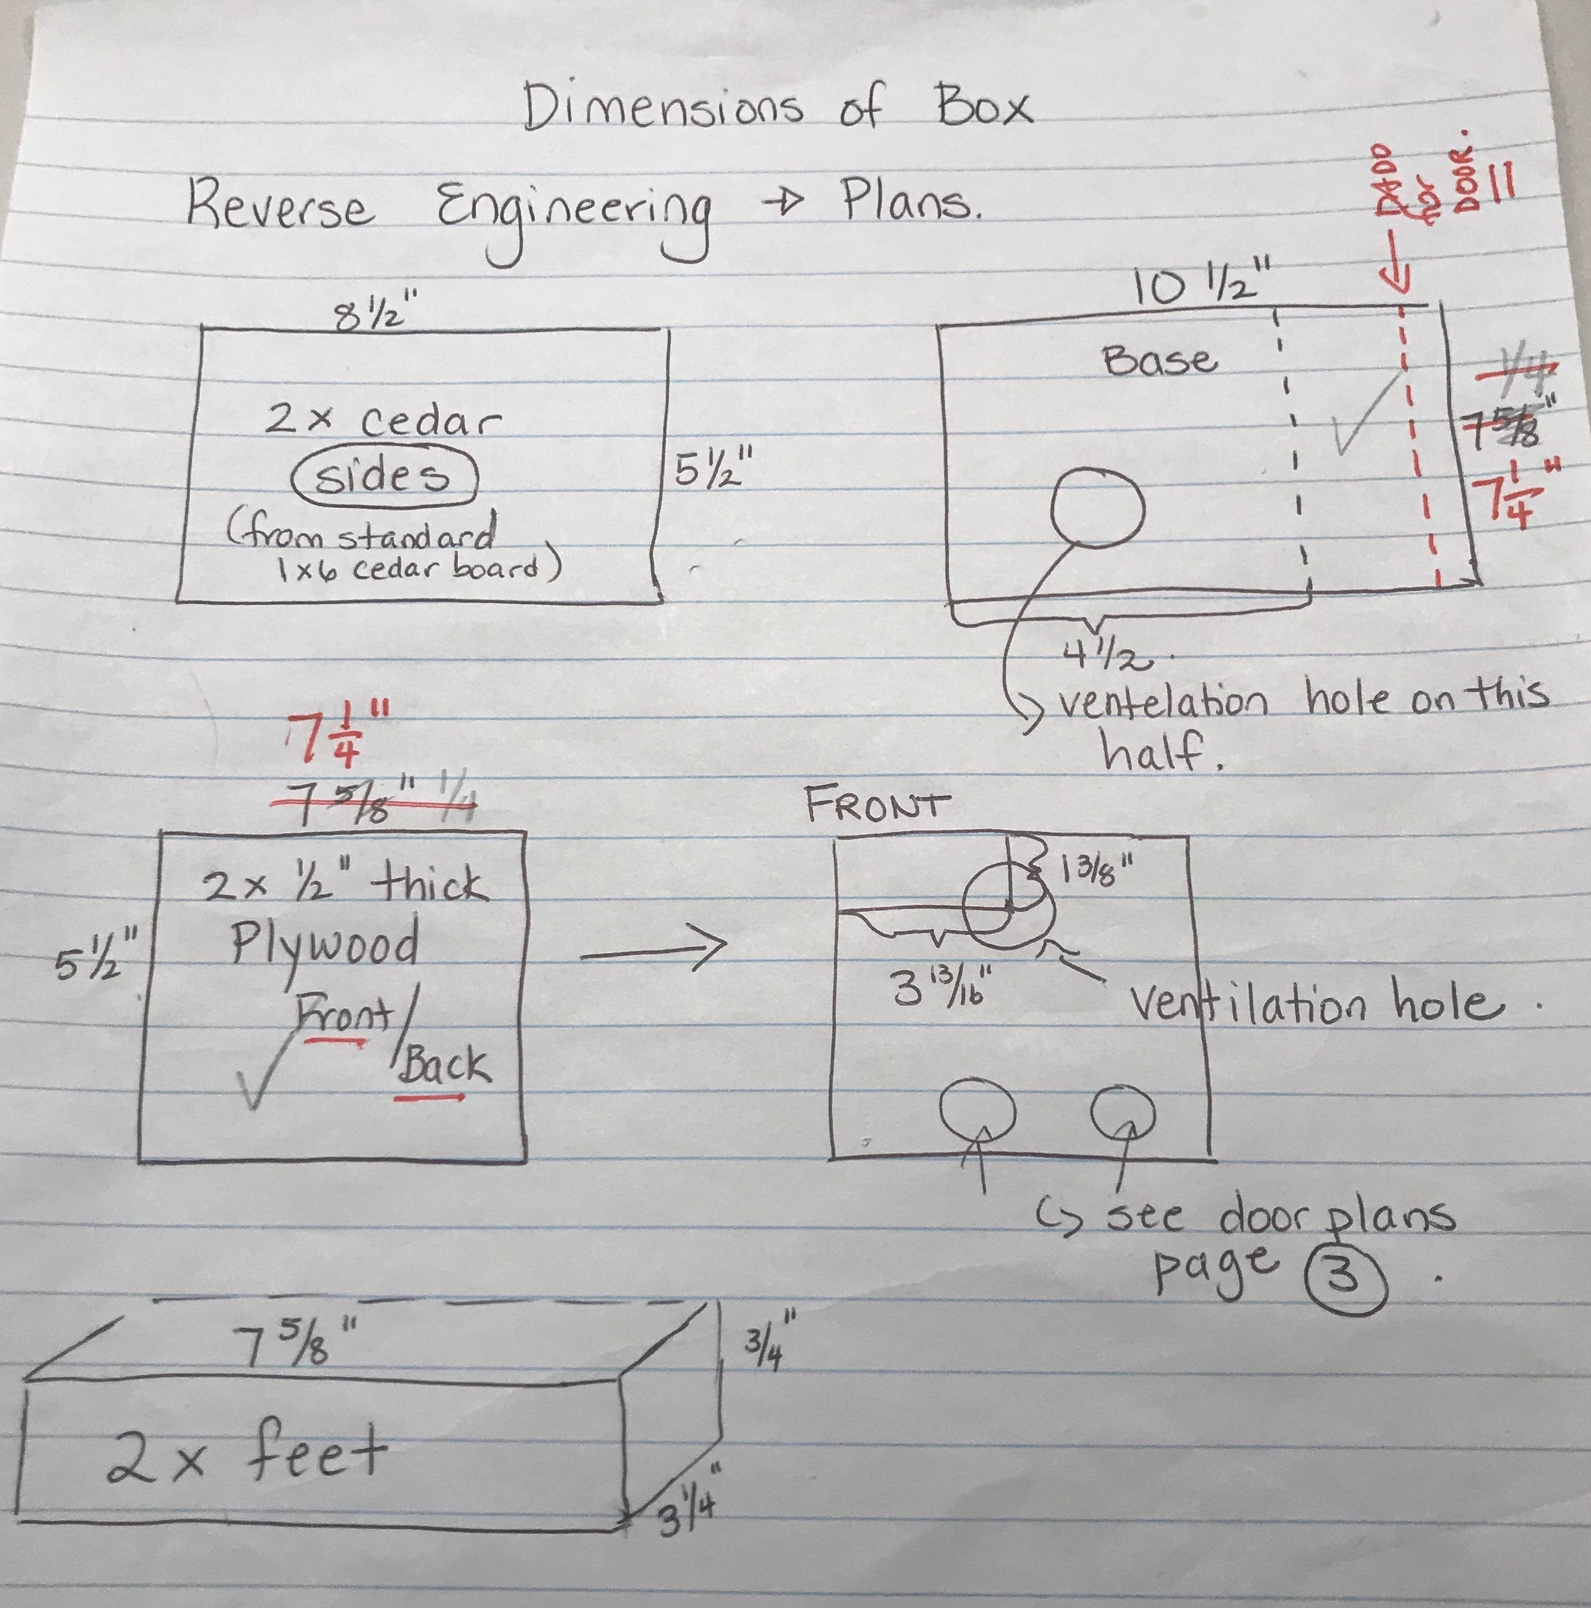 Dimensions of Box
Reverse Engineering → Plans.
DADO
for
DOOR.
8 1/2"
2x cedar
sides
(from standard
1x6 cedar board)
5 1/2"
10 1/2"
Base
1/4
7 5/8"
7 1/4"
4 1/2
ventelation hole on this
half.
7 1/4"
7 5/8" 1/4
2x 1/2" thick
Plywood
Front/
Back
5 1/2"
FRONT
1 3/8"
3 13/16"
ventilation hole.
see door plans
page 3.
7 5/8"
3/4"
2x feet
3 1/4"